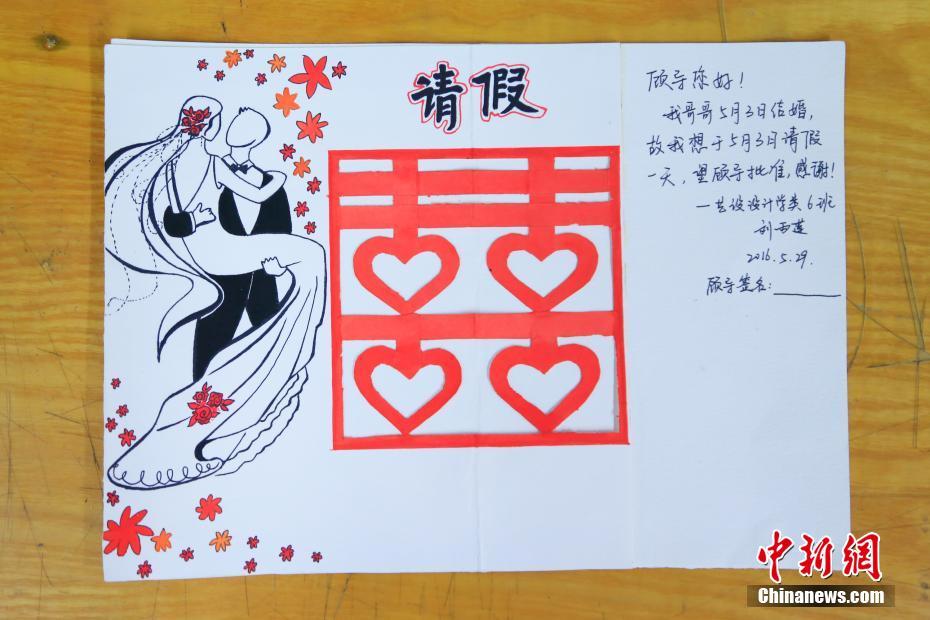 请假
顾导您好!
我哥哥5月3日结婚,
故我想于5月3日请假
一天,望顾导批准,感谢!
—艺设设计学类6班
刘雨莲
2016.5.29.
顾导签名:
中新網
Chinanews.com